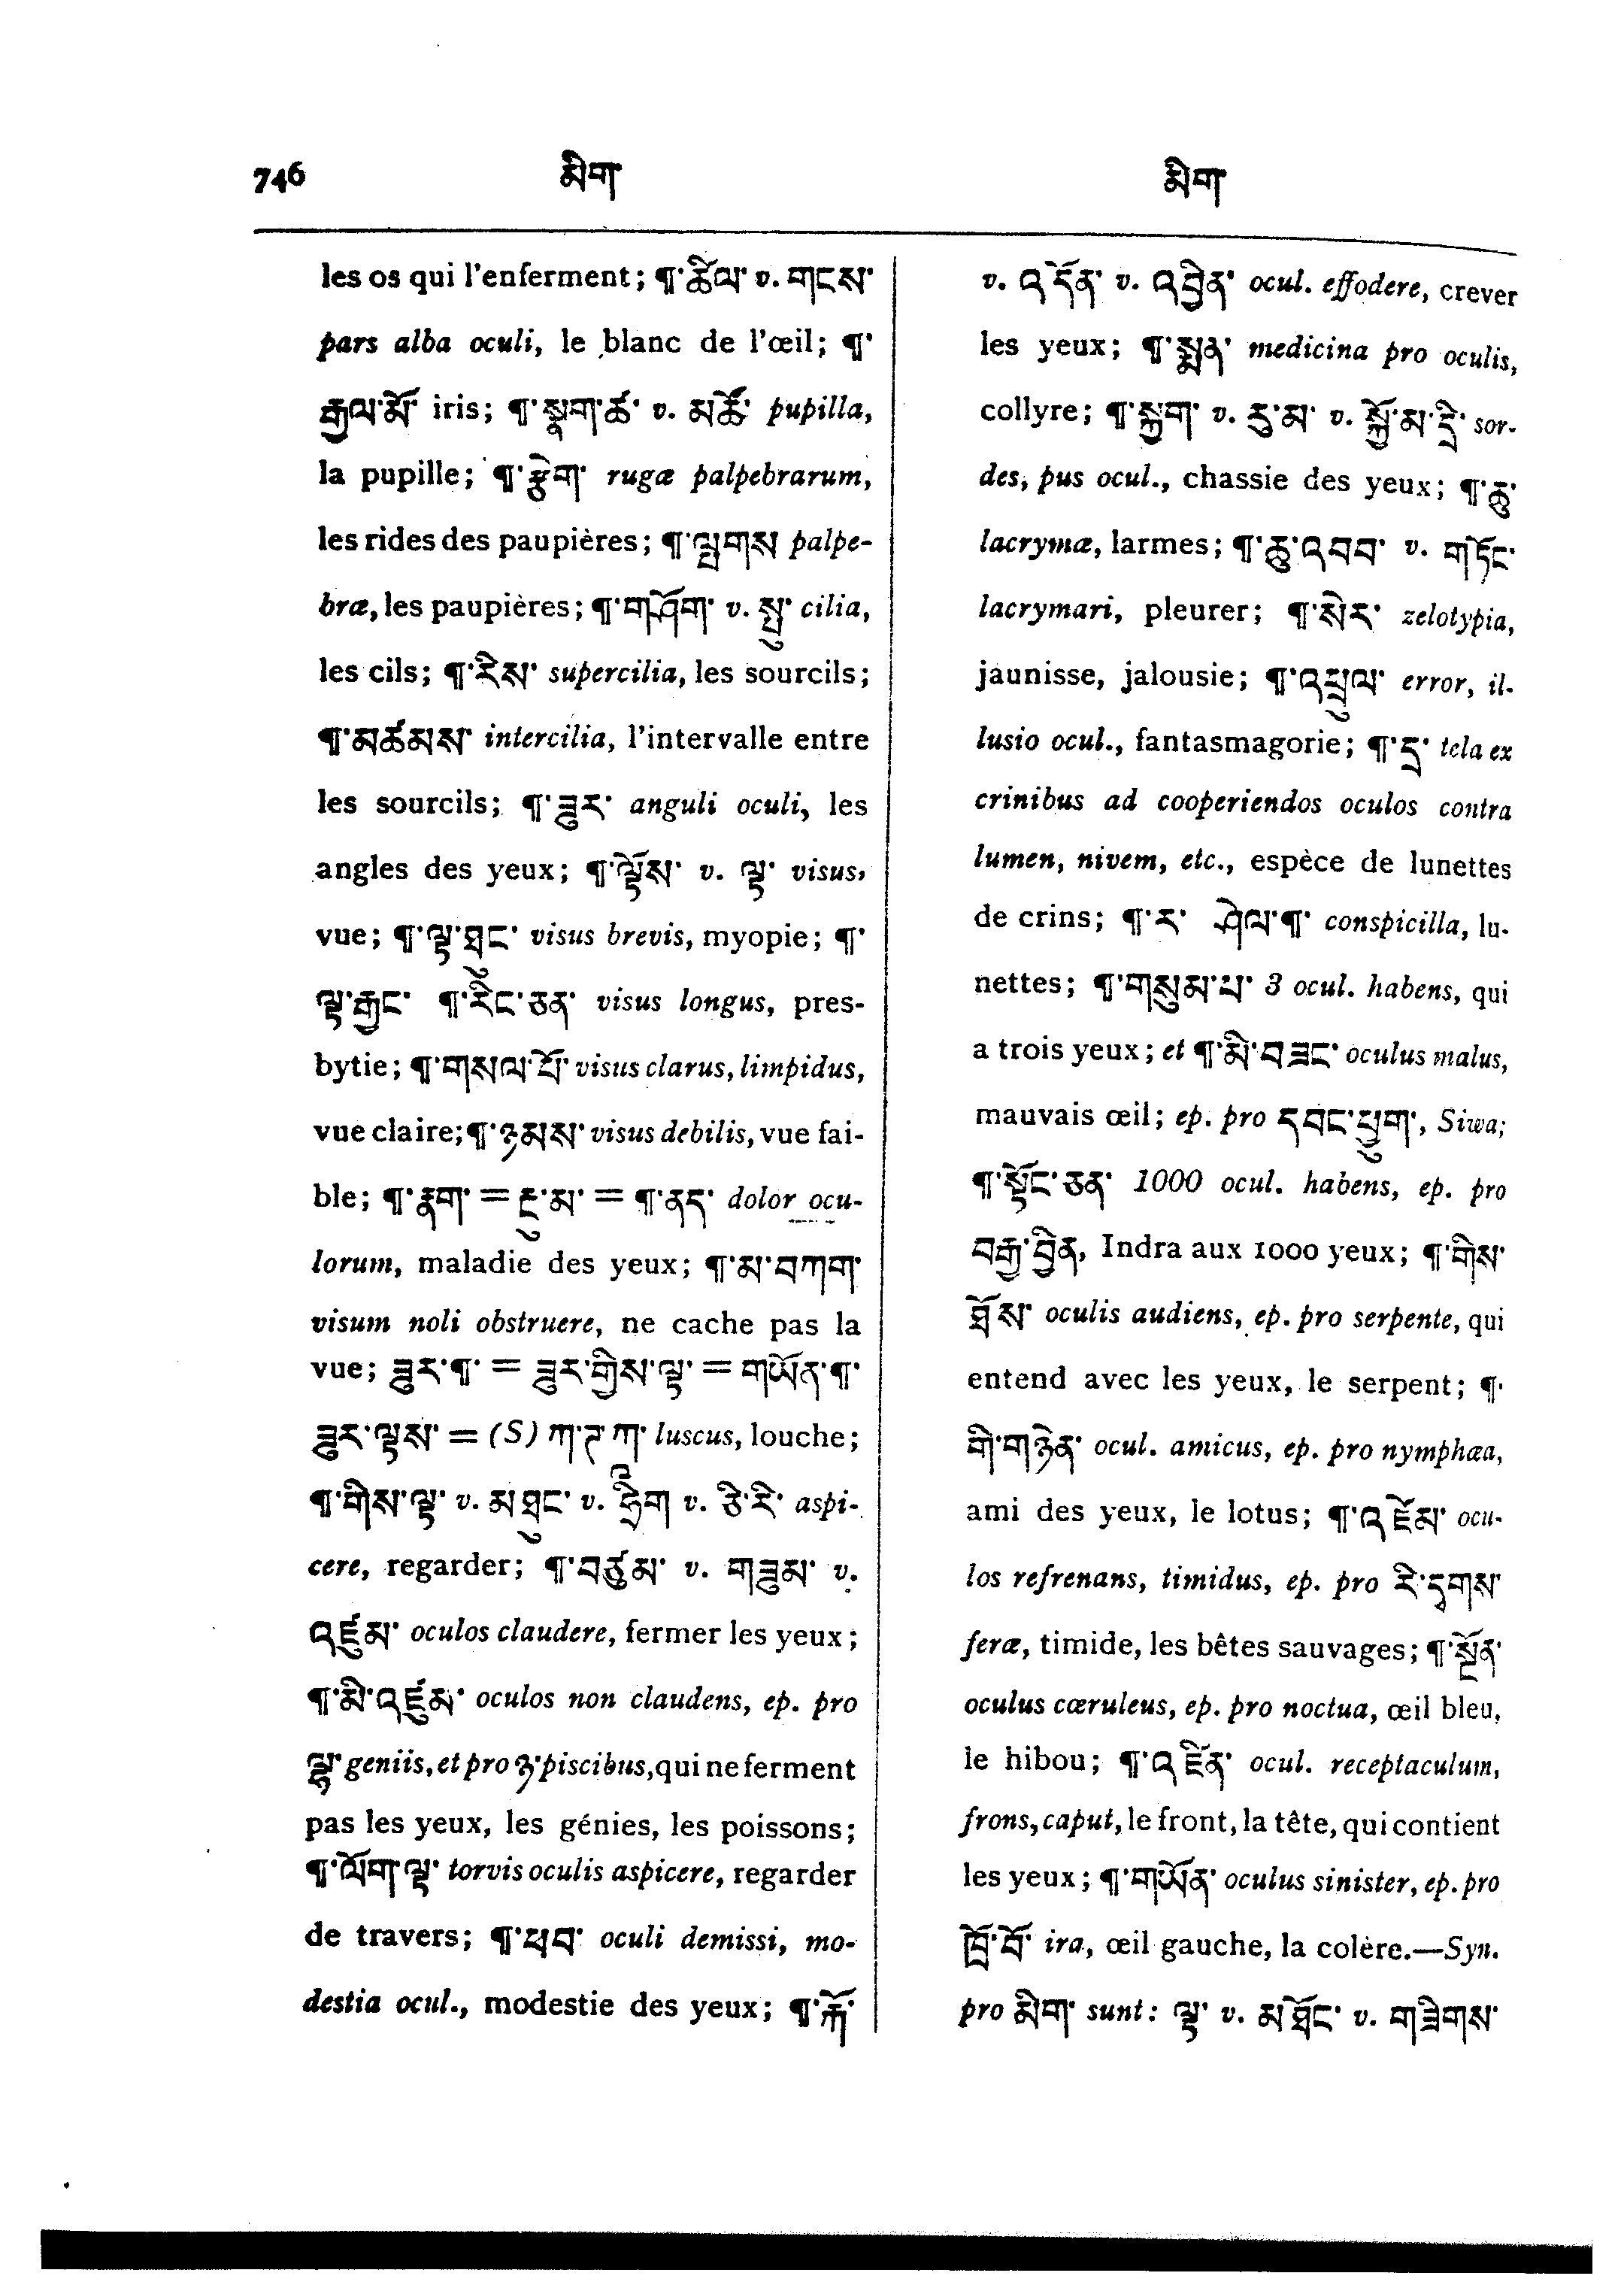 746 མིག་ མིག་
les os qui l'enferment; ¶་ཚིལ་ v. གངས་
pars alba oculi, le blanc de l'œil; ¶་
རྒྱལ་མོ་ iris; ¶་སྣག་ཚ་ v. མཚོ་ pupilla,
la pupille; ¶་རྩེག་ rugæ palpebrarum,
les rides des paupières; ¶་ལྤགས palpe-
bræ, les paupières; ¶་གཤོག་ v. སྤུ་ cilia,
les cils; ¶་རིས་ supercilia, les sourcils;
¶་མཚམས་ intercilia, l'intervalle entre
les sourcils; ¶་ཟུར་ anguli oculi, les
angles des yeux; ¶་ལྟོས་ v. ལྟ་ visus,
vue; ¶་ལྟ་ཐུང་ visus brevis, myopie; ¶་
ལྟ་རྒྱང་ ¶་རིང་ཅན་ visus longus, pres-
bytie; ¶་གསལ་པོ་ visus clarus, limpidus,
vue claire; ¶་ཉམས་ visus debilis, vue fai-
ble; ¶་རྣག་ = རྔུ་མ་ = ¶་ནད་ dolor ocu-
lorum, maladie des yeux; ¶་མ་བཀག་
visum noli obstruere, ne cache pas la
vue; ཟུར་¶་ = ཟུར་གྱིས་ལྟ་ = གཡོན་¶་
ཟུར་ལྟས་ = (S) ཀ་ཊ་ཀ་ luscus, louche;
¶་གིས་ལྟ་ v. མཐུང་ v. ཧྲིག v. ཅེ་རེ་ aspi-
cere, regarder; ¶་བཙུམ་ v. གཟུམ་ v.
འཛུམ་ oculos claudere, fermer les yeux;
¶་མི་འཛུམ་ oculos non claudens, ep. pro
ལྷ་ geniis, et pro ཉ་ piscibus, qui ne ferment
pas les yeux, les génies, les poissons;
¶་ལོག་ལྟ་ torvis oculis aspicere, regarder
de travers; ¶་ཕབ་ oculi demissi, mo-
destia ocul., modestie des yeux; ¶་རྐོ་
v. འདོན་ v. འབྱིན་ ocul. effodere, crever
les yeux; ¶་སྨན་ medicina pro oculis,
collyre; ¶་སྐྱག་ v. རུ་མ་ v. སྐྱོ་མ་དྲི་ sor-
des, pus ocul., chassie des yeux; ¶་ཆུ་
lacrymæ, larmes; ¶་ཆུ་འབབ་ v. གཏོང་
lacrymari, pleurer; ¶་སེར་ zelotypia,
jaunisse, jalousie; ¶་འཕྲུལ་ error, il-
lusio ocul., fantasmagorie; ¶་དྲ་ tela ex
crinibus ad cooperiendos oculos contra
lumen, nivem, etc., espèce de lunettes
de crins; ¶་ར་ ཤེལ་¶་ conspicilla, lu-
nettes; ¶་གསུམ་པ་ 3 ocul. habens, qui
a trois yeux; et ¶་མི་བཟང་ oculus malus,
mauvais œil; ep. pro དབང་ཕྱུག་, Siwa;
¶་སྟོང་ཅན་ 1000 ocul. habens, ep. pro
བརྒྱ་བྱིན, Indra aux 1000 yeux; ¶་གིས་
ཐོས་ oculis audiens, ep. pro serpente, qui
entend avec les yeux, le serpent; ¶་
གི་གཉེན་ ocul. amicus, ep. pro nymphæa,
ami des yeux, le lotus; ¶་འཛེམ་ ocu-
los refrenans, timidus, ep. pro རི་དྭགས་
feræ, timide, les bêtes sauvages; ¶་སྔོན་
oculus cœruleus, ep. pro noctua, œil bleu,
le hibou; ¶་འཛིན་ ocul. receptaculum,
frons, caput, le front, la tête, qui contient
les yeux; ¶་གཡོན་ oculus sinister, ep. pro
ཁྲོ་བོ་ ira, œil gauche, la colère.—Syn.
pro མིག་ sunt: ལྟ་ v. མཐོང་ v. གཟིགས་